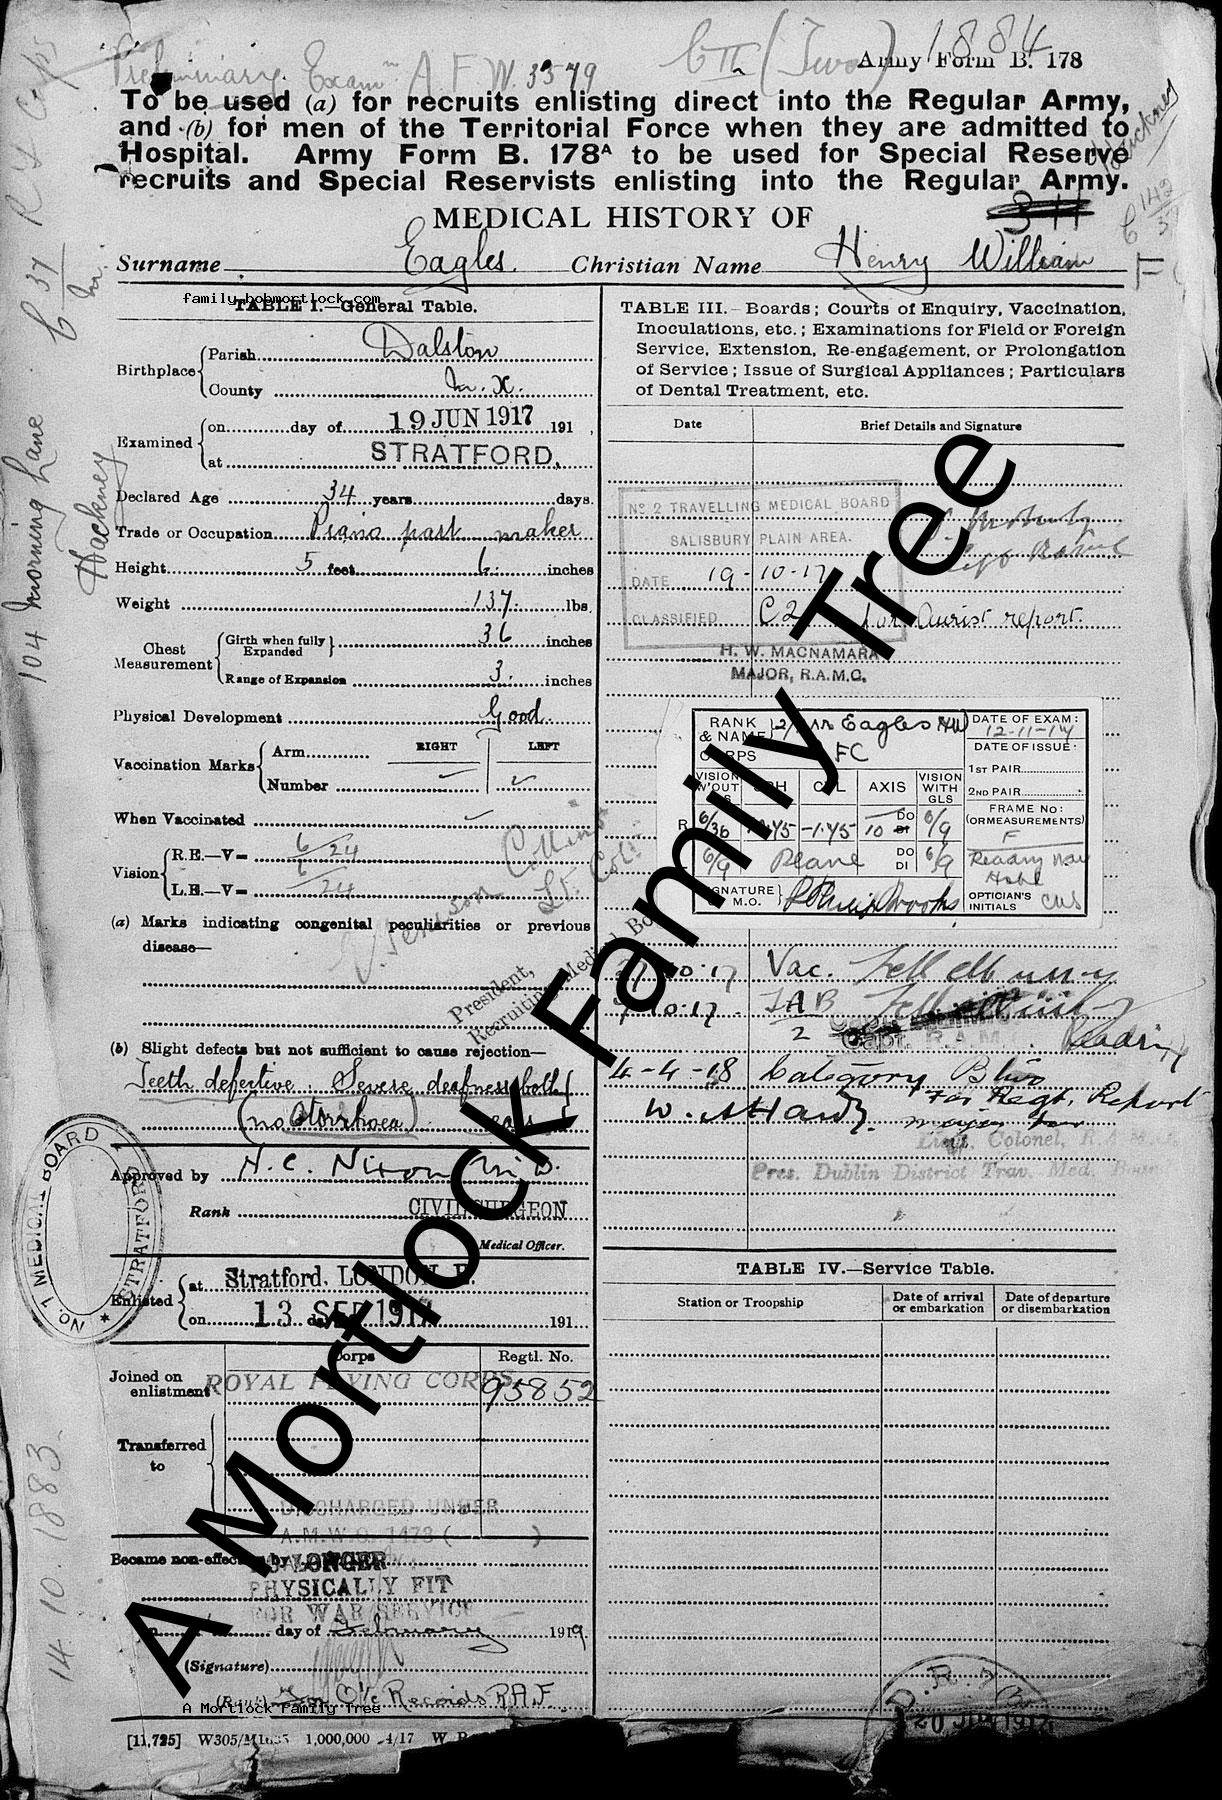 Preliminary Exam A F W. 3579
CIII (Two)
1884
Army Form B. 178
To be used (a) for recruits enlisting direct into the Regular Army,
and (b) for men of the Territorial Force when they are admitted to
Hospital. Army Form B. 178A to be used for Special Reserve
recruits and Special Reservists enlisting into the Regular Army.
MEDICAL HISTORY OF
Surname Eagles. Christian Name Henry William
family.bobmortlock.com
TABLE I.—General Table.
Birthplace
Parish Dalston
County M.X.
Examined
on day of 19 JUN 1917 191
at STRATFORD.
Declared Age 34 years days.
Trade or Occupation Piano part maker
Height 5 feet 6. inches
Weight 137. lbs.
Chest Measurement
Girth when fully Expanded 36 inches
Range of Expansion 3. inches
Physical Development Good.
Vaccination Marks
Arm RIGHT LEFT
Number
When Vaccinated
Vision
R.E.—V= 6/24
L.E.—V= 6/24
(a) Marks indicating congenital peculiarities or previous
disease—
President,
Recruiting Medical Bo
(b) Slight defects but not sufficient to cause rejection—
Teeth defective. Severe deafness both
(no otorrhoea) ears
NO. 1 MEDICAL BOARD STRATFORD
Approved by H. C. Nixon M.D.
Rank CIVIL SURGEON
Medical Officer.
Enlisted
at Stratford. LONDON. E.
on 13 day SEP 1917 191
Corps Regtl. No.
Joined on enlistment ROYAL FLYING CORPS. 95852
Transferred to
DISCHARGED UNDER
A.M.W.O. 1473 ( )
Became non-effective by NO LONGER
PHYSICALLY FIT
FOR WAR SERVICE
on day of February 1919
(Signature)
(Rank) For O i/c Records R.A.F.
A Mortlock Family Tree
[11,725] W305/M1635 1,000,000 4/17
TABLE III.—Boards; Courts of Enquiry, Vaccination,
Inoculations, etc.; Examinations for Field or Foreign
Service, Extension, Re-engagement, or Prolongation
of Service; Issue of Surgical Appliances; Particulars
of Dental Treatment, etc.
Date Brief Details and Signature
No 2 TRAVELLING MEDICAL BOARD
SALISBURY PLAIN AREA.
DATE 19-10-17
CLASSIFIED C2 for Aurist report.
H. W. MACNAMARA
MAJOR, R.A.M.C.
RANK & NAME 2/ Eagles HW DATE OF EXAM: 12-11-17
CORPS FC DATE OF ISSUE:
1ST PAIR
2ND PAIR
VISION W'OUT GLS SPH CYL AXIS VISION WITH GLS
FRAME NO: (OR MEASUREMENTS) F
R 6/36 -1.75 10 DO DI 6/9
6/9 Plane DO DI 6/9
Reading War Hosp
SIGNATURE M.O.
OPTICIAN'S INITIALS
10.17 Vac.
10.17. TAB
2
Capt. R.A.M.C. Reading
4-4-18 Category B two
For Regt. Report
W. A Hardy. major
Lieut. Colonel, R.A.M.C.
Pres. Dublin District Trav. Med. Board
TABLE IV.—Service Table.
Station or Troopship Date of arrival or embarkation Date of departure or disembarkation
D.R.
20 JUN 1917
104 Morning Lane
Hackney
14. 10. 1883.
A Mortlock Family Tree